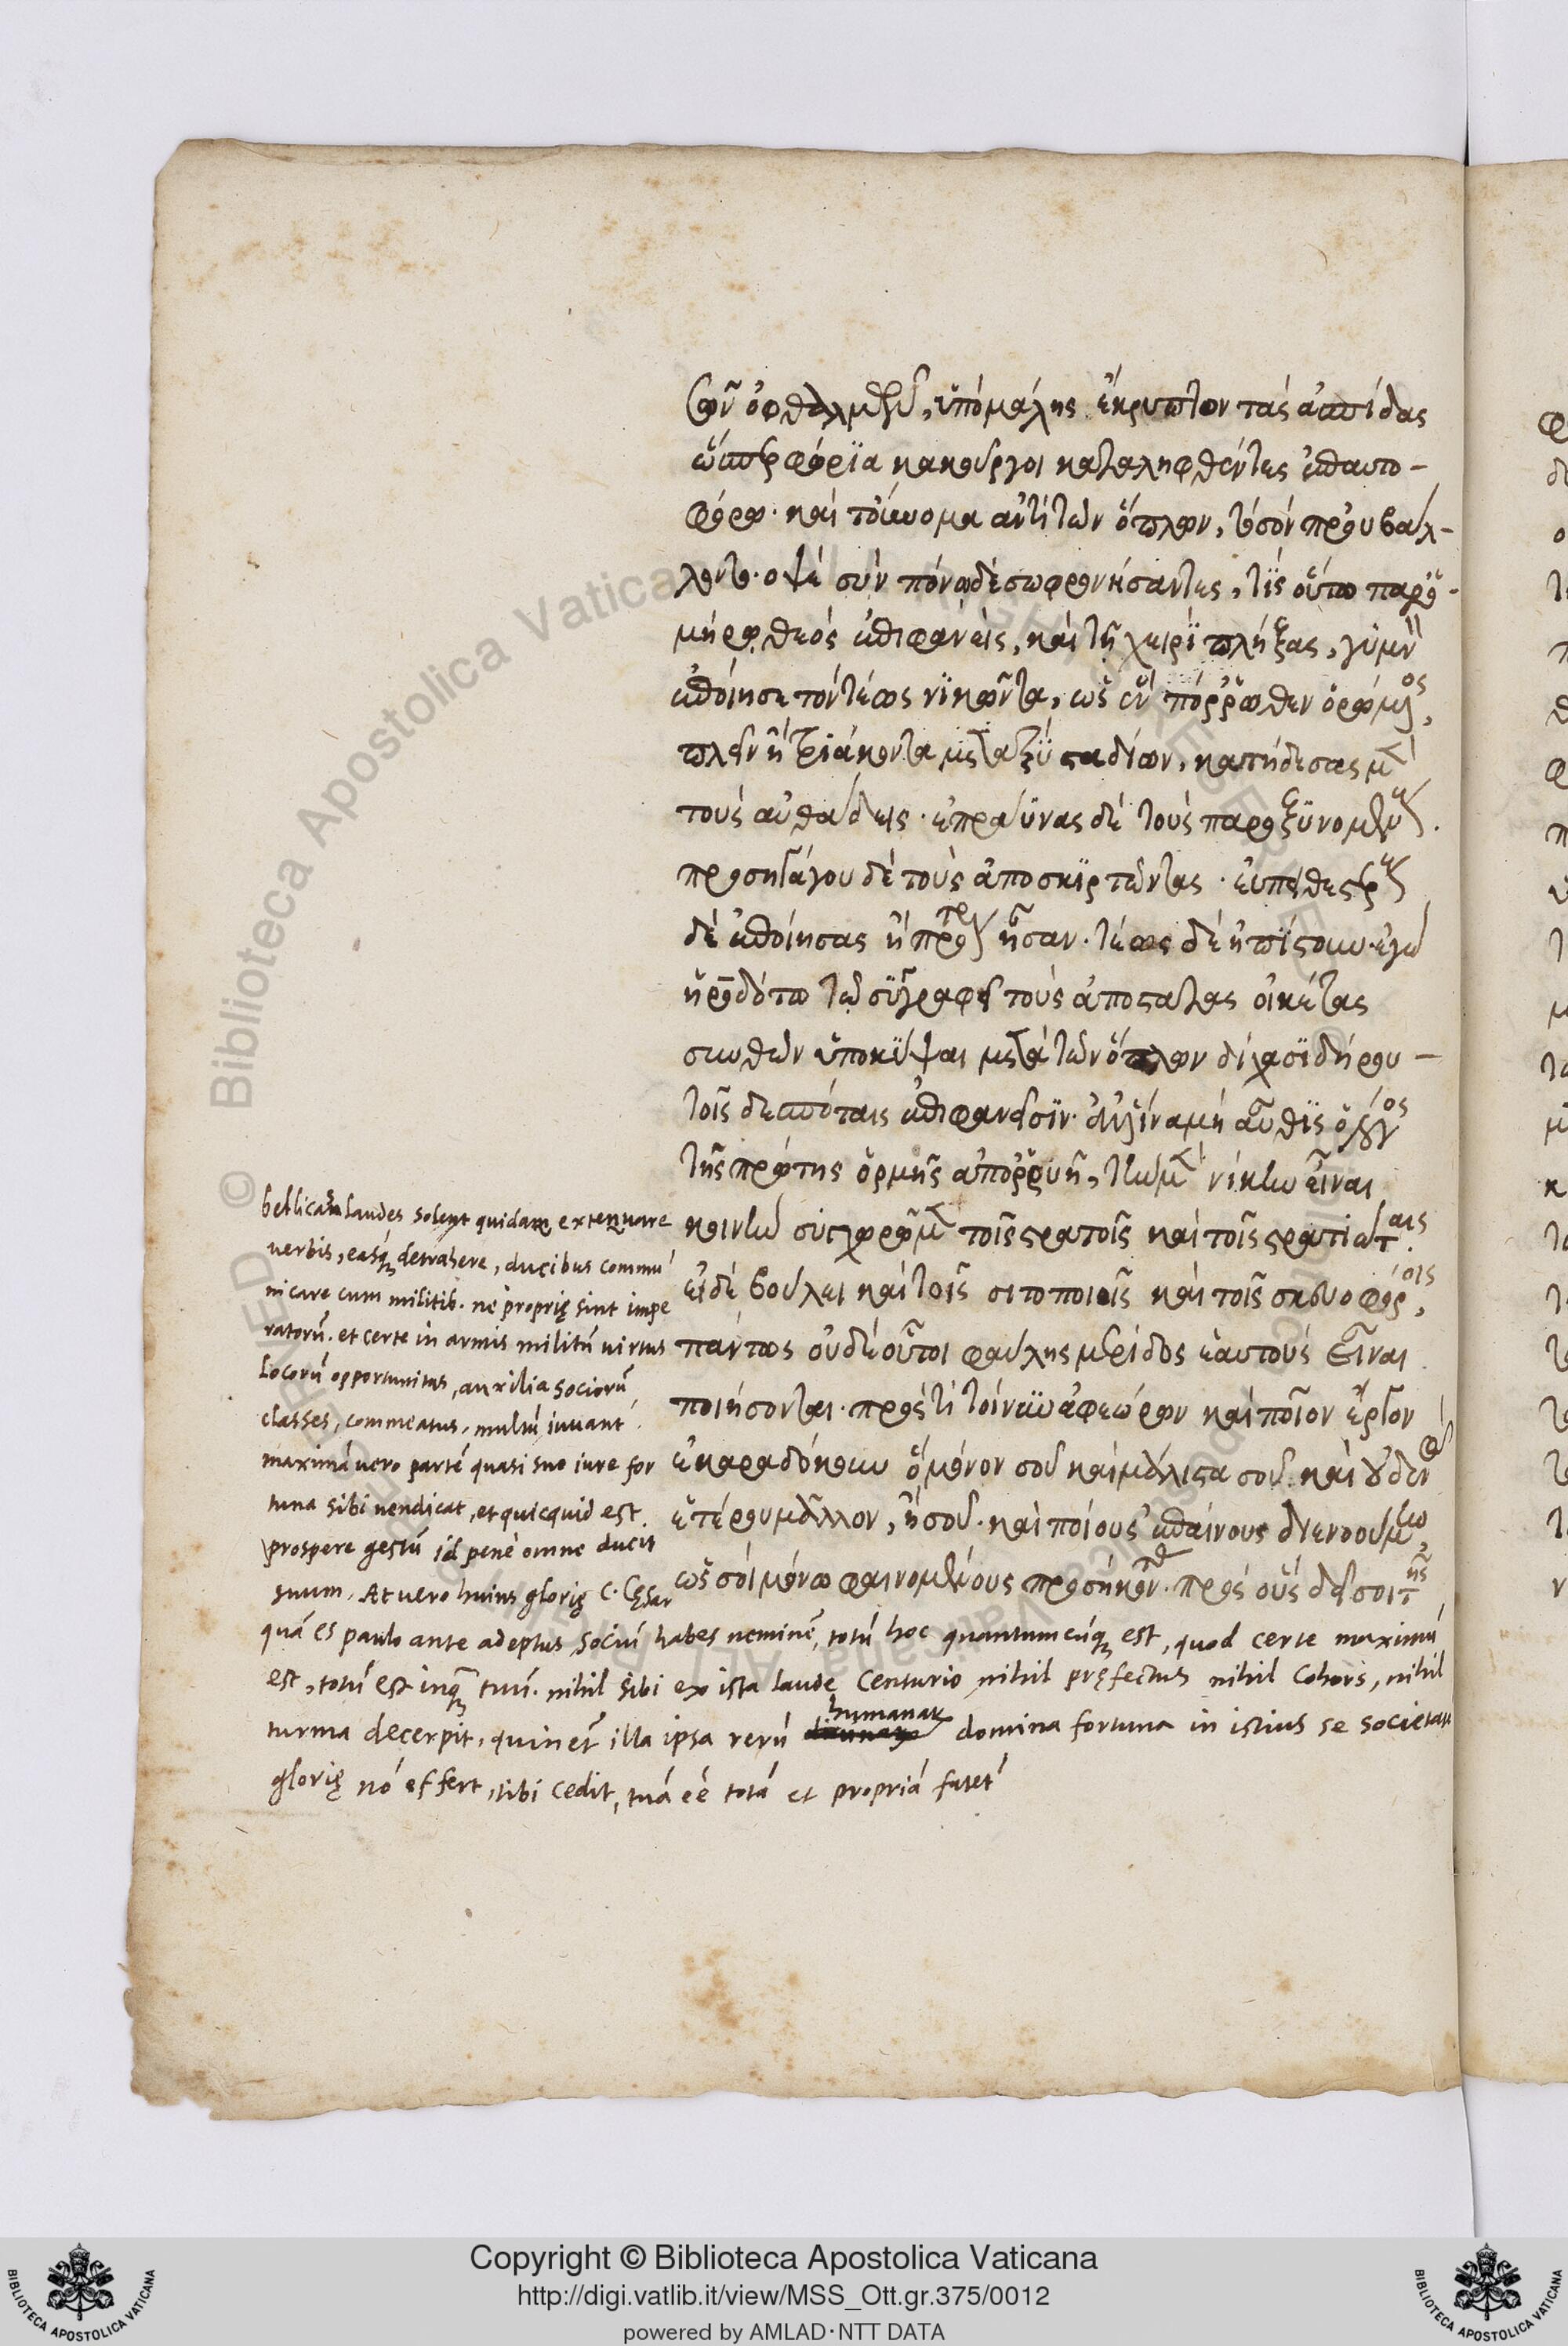 τῶν ὀφθαλμῶν, ὑπὸ μάλης ἔκρυπτον τὰς ἀσπίδας
ὥσπερ φώρια κακοῦργοι καταληφθέντες ἐπαυτο-
φόρω. καὶ τοὔνομα ἀντὶ τῶν ὅπλων, τὸ σὸν προυβάλ-
λοντο. ὀψὲ σὺν πόνω δὲ σωφρονήσαντες, τίς οὕτω παρ' ὁ-
μήρω θεὸς ἐπιφανεὶς, καὶ τῇ χειρὶ πλήξας, γυμν
ἐποίησε τὸν τέως νικῶντα, ὡς ἐν πόρρωθεν ὁρώμενος,
πλεῖν ἢ τριάκοντα μεταξὺ σταδίων, κατῄδεσας μὲν
τοὺς αὐθάδεις. ἐπράϋνας δὲ τοὺς παροξυνομένους.
προσηγάγου δὲ τοὺς ἀποσκιρτῶντας. εὐπειθεστέρους
δὲ ἐποίησας ἢ πρότερον ἦσαν. τέως δὲ ἠπίστουν ἐγὼ
ἡροδότω τῷ συγγραφεῖ τοὺς ἀποστάτας οἰκέτας
εἰπὼν ὑποκύψαι μετὰ τῶν ὅπλων δίχα σιδήρου
τοῖς δεσπόταις ἐπιφανεῖσιν. ἀλλ' ἵνα μὴ αὖθις ὁ λόγος
τῆς πρώτης ὁρμῆς ἀπορρυῇ, τὴν μὲν νίκην εἶναι
κοινὴν συγχωρῶμεν τοῖς στρατοῖς καὶ τοῖς στρατιώταις.
εἰ δὲ βούλει καὶ τοῖς σιτοποιοῖς καὶ τοῖς σκευοφόροις,
πάντως οὐδὲ οὗτοι φαύλης μερίδος ἑαυτοὺς εἶναι
ποιήσονται. πρὸς τί τοίνυν ἀφεώρων καὶ ποῖον ἔργον
ἐκαραδόκουν ὃ μόνον σοῦ καὶ μάλιστα σοῦ. καὶ οὐδενὸς
ἑτέρου μᾶλλον, ἢ σοῦ. καὶ ποίους ἐπαίνους διενοούμην
ὡς σοὶ μόνω φαινομένους προσήκοντας. πρὸς οὓς δεῖ σοι τῆς
bellicas laudes solent quidam extenuare
verbis, easq; detrahere, ducibus commu
nicare cum militib. ne proprię sint impe
ratorũ. et certe in armis militũ virtus
Locorũ opportunitas, auxilia sociorũ
classes, commeatus, multũ iuvant.
maximã vero partẽ quasi suo iure for
tuna sibi vendicat, et quicquid est
prospere gestũ id pene omne ducit
suum. At vero huius glorię C. Cęsar
quã es paulo ante adeptus sociũ habes neminẽ, totũ hoc quantumcũq; est, quod certe maximũ
est, totũ est inq̃ tuũ. nihil sibi ex ista laude Centurio nihil pręfectus nihil Cohors, nihil
turma decerpit, quin et illa ipsa rerũ humanar domina fortuna in istius se societatẽ
glorię nõ effert, tibi cedit, tuã eẽ totã et propriã fatet
Copyright © Biblioteca Apostolica Vaticana
http://digi.vatlib.it/view/MSS_Ott.gr.375/0012
powered by AMLAD·NTT DATA